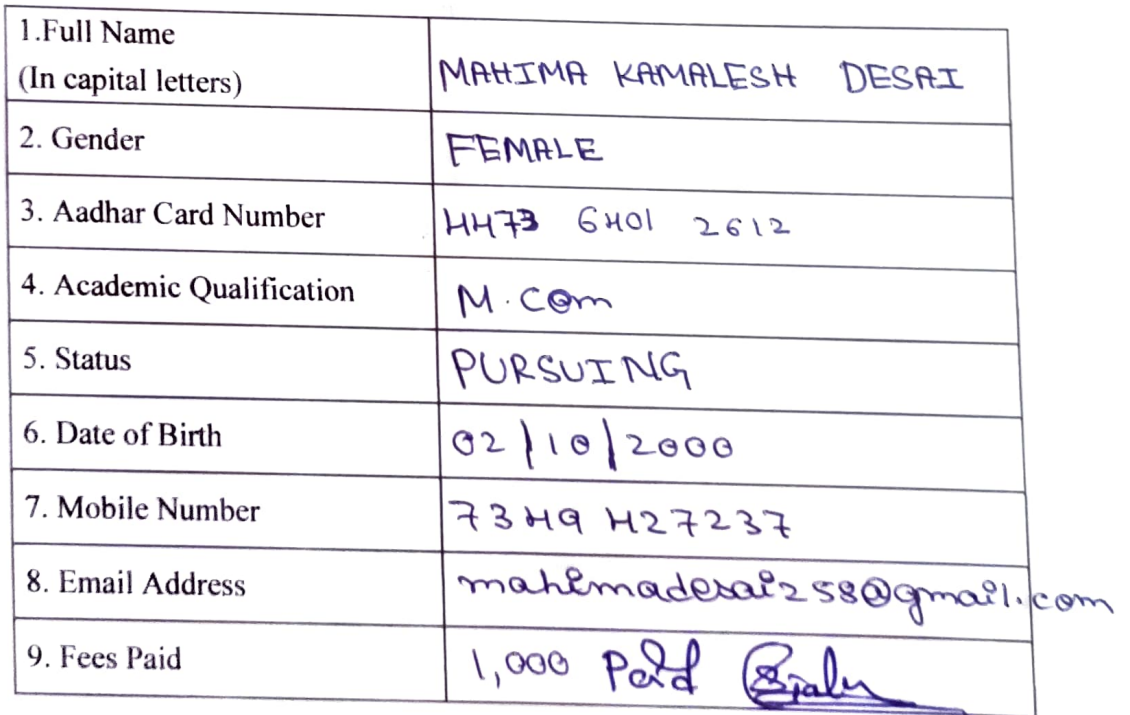 1.Full Name
(In capital letters)
MAHIMA KAMALESH DESAI
2. Gender
FEMALE
3. Aadhar Card Number
4473 6401 2612
4. Academic Qualification
M.Com
5. Status
PURSUING
6. Date of Birth
02/10/2000
7. Mobile Number
7349 427237
8. Email Address
mahimadesai258@gmail.com
9. Fees Paid
1,000 Paid